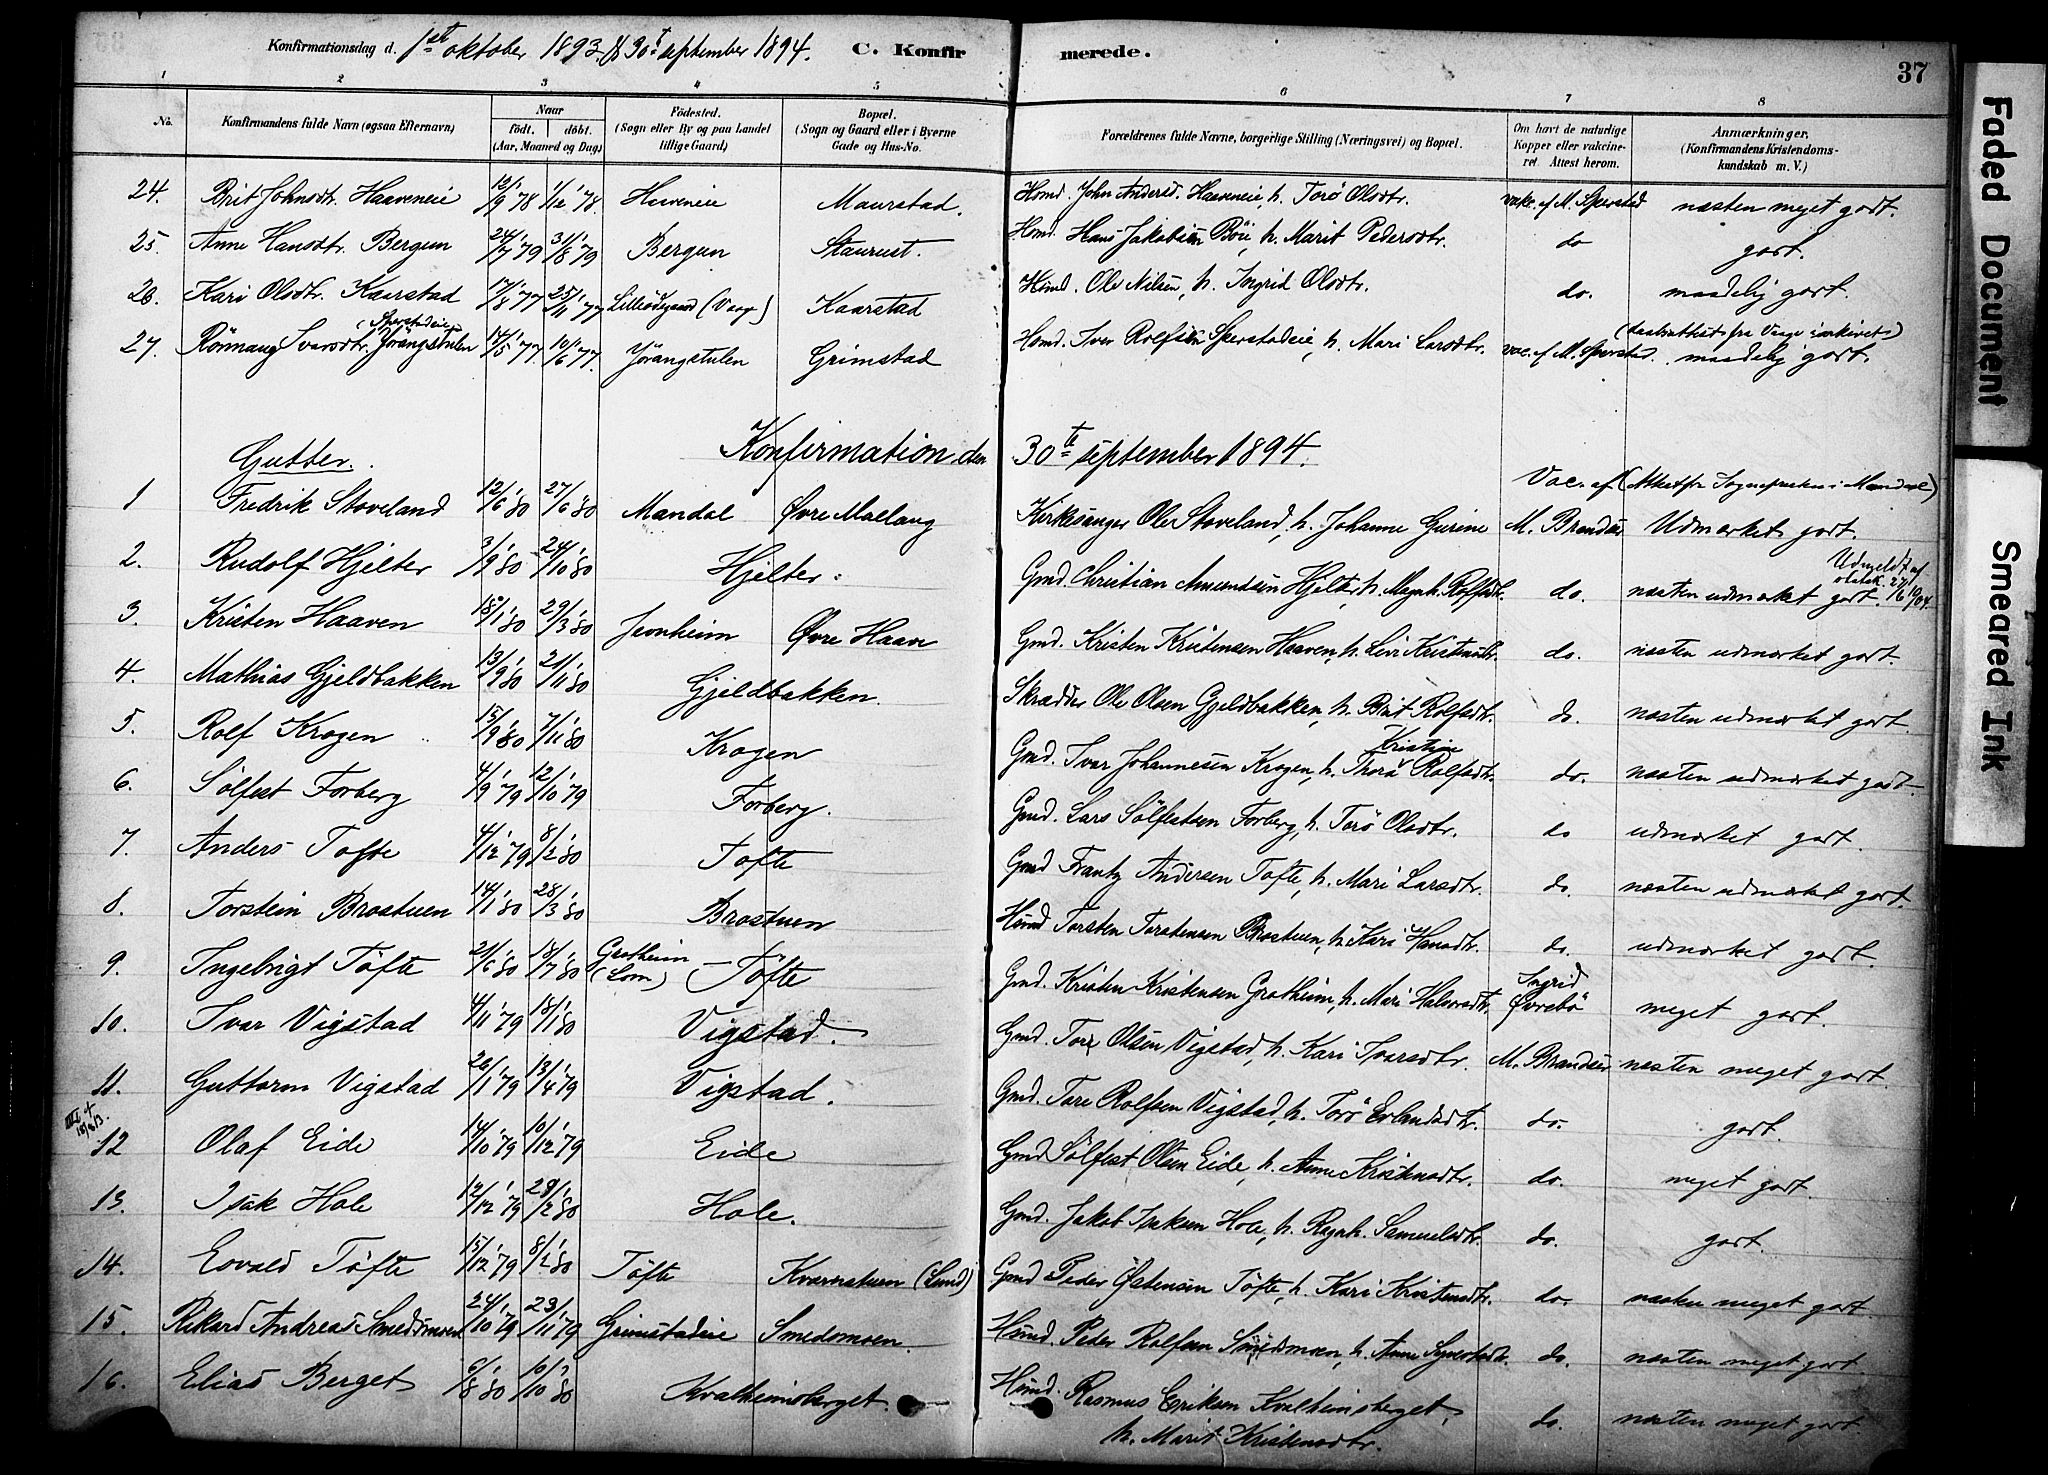 Konfirmationsdag d. 1ste oktober 1893. & 30te september 1894. C. Konfirmerede. 37
1 2 3 4 5 6 7 8
No. Konfirmandens fulde Navn (ogsaa Efternavn) Naar født. døbt. (Aar, Maaned og Dag) Fødested. (Sogn eller By og paa Landet tillige Gaard) Bopæl. (Sogn og Gaard eller i Byerne Gade og Hus-No. Forældrenes fulde Navne, borgerlige Stilling (Næringsvei) og Bopæl. Om havt de naturlige Kopper eller vakcineret. Attest herom. Anmærkninger, (Konfirmandens Kristendomskundskab m. V.)
24. Brit Johnsdtr. Haaveneie 12/9 '78 1/12 '78. Haaveneie Maurstad. Hsmd. John Andersd. Haaveneie, h. Torø Olsdtr. vakc. af M. Sperstad næsten meget godt.
25 Anne Hansdtr. Bergum 24/7 '79 31/8 '79 Bergum Staurust. Hsmd. Hans Jakobsen Böe, h. Marit Pedersdtr. do godt.
26. Kari Olsdtr. Kaarstad 17/8 '77 25/11 '77 Lilleødegaard (Vaage) Kaarstad Hsmd. Ole Nilsen, h. Ingrid Olsdtr. do. maadelig godt.
27. Rönnaug Ivarsdtr. Sperstadeie, Jörangstulen 14/5 '77. 10/6 '77. Jörangstulen Grimstad Hsmd. Iver Rolfsen Sperstadeie, h. Mari Larsdtr. vac. af M. Sperstad. (daabsattest fra Vaage i arkivet) maadelig godt.
Konfirmation den 30te september 1894.
Gutter.
Vac. af (Attest fra Sognepresten i Mandal)
1 Fredrik Stoveland 12/6 '80 27/6 '80 Mandal Øvre Mælang Kirkesanger Ole Stoveland, h. Johanne Gurine M. Brandser Udmærket godt.
Udmeldt af statsk. 27/6 1904.
2. Rudolf Hjelter 3/9 '80 24/10 '80 Hjelter. Gmd. Christian Amundsen Hjelter, h. Magnh. Rolfsdtr. do. næsten udmærket godt.
3. Kristen Haaven 18/1 '80 29/3 '80 Jevnheim Øvre Haave Gmd. Kristen Kristensen Haaven, h. Livi Kristensdtr. do. næsten udmærket godt.
4. Mathias Gjeldbakken 13/9 '80 21/11 '80 Gjeldbakken. Skrædder Ole Olsen Gjeldbakken, h. Brit Rolfsdtr. do. næsten udmærket godt.
5. Rolf Krogen 15/9 '80 7/11 '80 Krogen Gmd. Ivar Johannesen Krogen, h. Thorø Kristine Rolfsdtr. do. næsten udmærket godt.
6. Sølfest Forberg 4/9 '79 12/10 '79 Forberg. Gmd. Lars Sølfestsen Forberg, h. Torø Olsdtr. do udmærket godt.
7. Anders Tofte 4/12 '79 8/2 '80 Tofte Gmd Frantz Andersen Tofte, h. Mari Larsdtr. do. næsten udmærket godt.
8. Torstein Brostuen 14/1 '80 28/3 '80 Brostuen Hsmd Torsten Torstensen Brostuen, h. Kari Hansdtr. do. udmærket godt.
9. Ingebrigt Töfte 21/6 '80 18/7 '80 Grotheim (Lom) Töfte Gmd. Kristen Kristensen Grotheim, h. Mari Halvorsdtr. Ingrid Øvrebö meget godt.
10. Ivar Vigstad 4/11 '79 18/1 '80 Vigstad. Gmd. Tore Olsen Vigstad, h. Kari Ivarsdtr. M. Brandser næsten meget godt.
11. Guttorm Vigstad 26/1 '79 13/4 '79 Vigstad. Gmd. Tore Rolfsen Vigstad, h. Torö Erlandsdtr. do. godt.
12 Olaf Eide 14/10 '79 10/12 '79 Eide Gmd Sölfest Olsen Eide, h. Anne Kristensdtr. do. meget godt.
13. Isak Hole 12/12 '79 29/2 '80 Hole. Gmd. Jakob Isaksen Hole, h. Ragnh. Samuelsdtr. do. godt.
14. Eovald Töfte 15/12 '79 8/2 '80 Töfte Kvarnstuen (Lund) Gmd Peder Østensen Töfte, h. Kari Kristensdtr. do. næsten meget godt
15. Rikard Andreas Smedsmoen 24/10 '79 23/11 '79 Grimstadeie Smedsmoen. Hsmd. Peder Rolfsen Smedsmoen, h. Anne Syvertsdtr. do. næsten meget godt.
16. Elias Berget 6/8 '80 10/10 '80 Kvalheimsberget Hsmd. Rasmus Eriksen Kvalheimsberget, do. næsten meget godt.
h. Marit Kristensdtr.
Faded Document
Smeared Ink